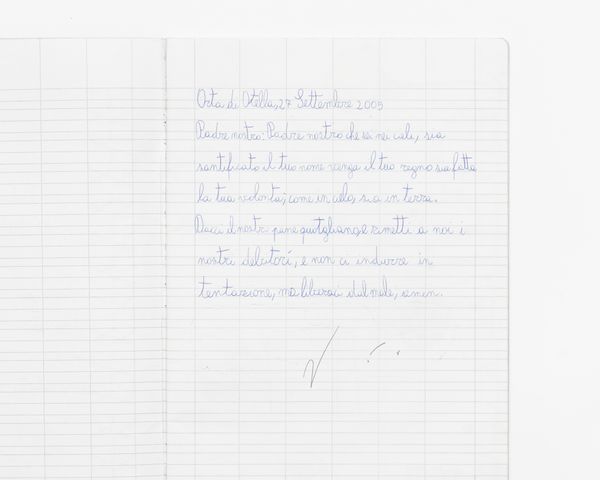 Orta di Atella, 27 Settembre 2005
Padre nostro: Padre nostro che sei nei cieli, sia
santificato il tuo nome venga il tuo regno sia fatta
la tua volontà, come in cielo, sia in terra.
Dacci il nostro pane quotgliano e rimetti a noi i
nostri debitori, e non ci indurre in
tentazione, ma liberaci dal male, amen.